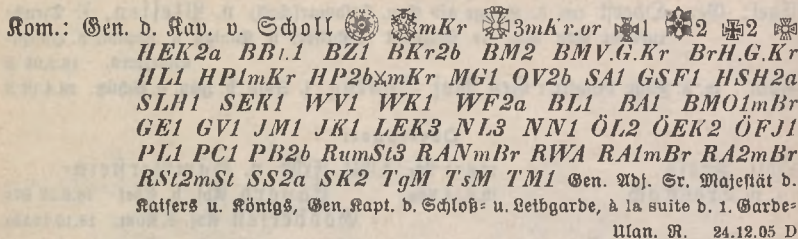 Kom.: Gen. d. Kav. v. Scholl mKr 3mKr.or 1 2 2
HEK2a BBL1 BZ1 BKr2b BM2 BMV.G.Kr BrH.G.Kr
HL1 HP1mKr HP2bxmKr MG1 OV2b SA1 GSF1 HSH2a
SLH1 SEK1 WV1 WK1 WF2a BL1 BA1 BMO1mBr
GE1 GV1 JM1 JK1 LEK3 NL3 NN1 ÖL2 ÖEK2 ÖFJ1
PL1 PC1 PB2b RumSt3 RANmBr RWA RA1mBr RA2mBr
RSt2mSt SS2a SK2 TgM TsM TM1 Gen. Adj. Sr. Majestät d.
Kaisers u. Königs, Gen. Kapt. d. Schloß- u. Leibgarde, à la suite d. 1. Garde-
Ulan. R. 24.12.05 D